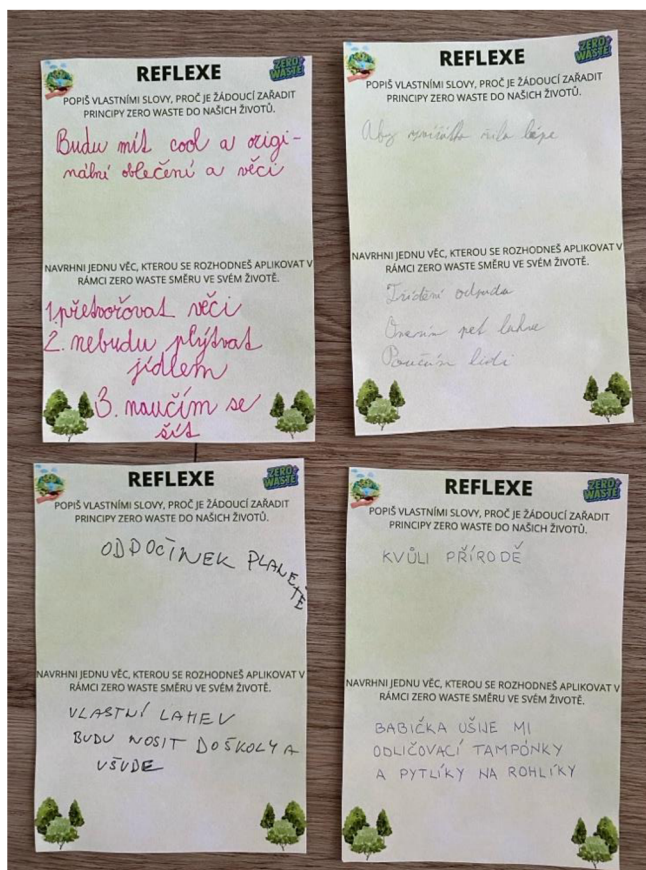 REFLEXE
ZERO
WASTE
POPIŠ VLASTNÍMI SLOVY, PROČ JE ŽÁDOUCÍ ZAŘADIT
PRINCIPY ZERO WASTE DO NAŠICH ŽIVOTŮ.
Budu mít cool a origi-
nální oblečení a věci
NAVRHNI JEDNU VĚC, KTEROU SE ROZHODNEŠ APLIKOVAT V
RÁMCI ZERO WASTE SMĚRU VE SVÉM ŽIVOTĚ.
1. přetvořovat věci
2. nebudu plýtvat
jídlem
3. naučím se
šít
REFLEXE
ZERO
WASTE
POPIŠ VLASTNÍMI SLOVY, PROČ JE ŽÁDOUCÍ ZAŘADIT
PRINCIPY ZERO WASTE DO NAŠICH ŽIVOTŮ.
Aby žila lépe
NAVRHNI JEDNU VĚC, KTEROU SE ROZHODNEŠ APLIKOVAT V
RÁMCI ZERO WASTE SMĚRU VE SVÉM ŽIVOTĚ.
Třídění odpadu
pet lahve
Poučím lidi
REFLEXE
ZERO
WASTE
POPIŠ VLASTNÍMI SLOVY, PROČ JE ŽÁDOUCÍ ZAŘADIT
PRINCIPY ZERO WASTE DO NAŠICH ŽIVOTŮ.
ODPOČINEK PLANETĚ
NAVRHNI JEDNU VĚC, KTEROU SE ROZHODNEŠ APLIKOVAT V
RÁMCI ZERO WASTE SMĚRU VE SVÉM ŽIVOTĚ.
VLASTNÍ LAHEV
BUDU NOSIT DO ŠKOLY A
VŠUDE
REFLEXE
ZERO
WASTE
POPIŠ VLASTNÍMI SLOVY, PROČ JE ŽÁDOUCÍ ZAŘADIT
PRINCIPY ZERO WASTE DO NAŠICH ŽIVOTŮ.
KVŮLI PŘÍRODĚ
NAVRHNI JEDNU VĚC, KTEROU SE ROZHODNEŠ APLIKOVAT V
RÁMCI ZERO WASTE SMĚRU VE SVÉM ŽIVOTĚ.
BABIČKA UŠIJE MI
ODLIČOVACÍ TAMPÓNKY
A PYTLÍKY NA ROHLÍKY